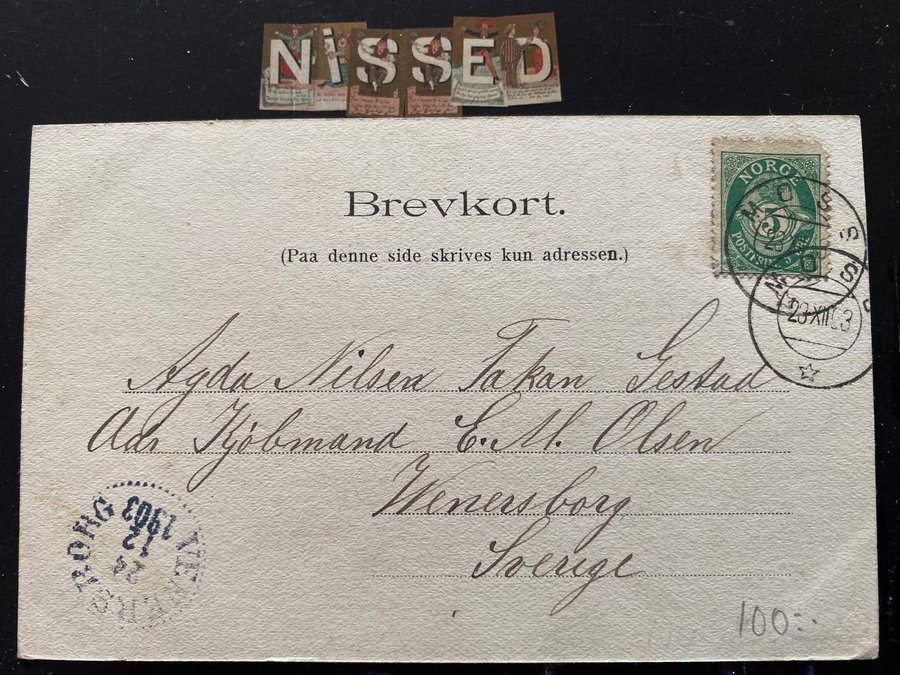 NiSSED
Brevkort.
(Paa denne side skrives kun adressen.)
NORGE
5
POSTFRIM 5 ØRE
MOSS
MOSS
23 XII 03
Agda Nilsen Takan Gestad
Adr Kjöbmand E. M. Olsen
Wenersborg
Sverige
VENERSBORG
24
12
1903
100:-